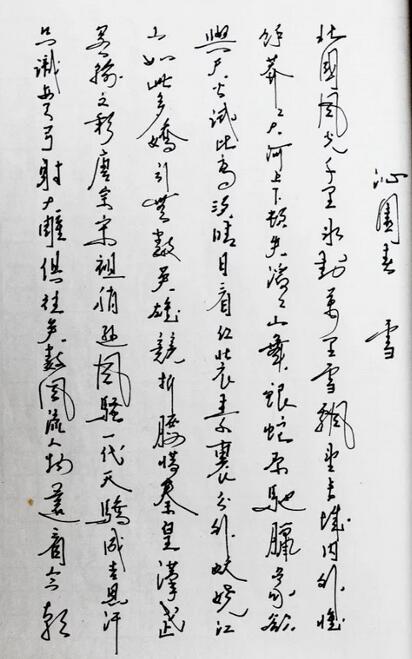 沁園春 雪
北國風光千里冰封萬里雪飄望長城内外惟
餘莽〻大河上下頓失滔〻山舞銀蛇原馳臘象欲
與天公試比高須晴日看红裝素裹分外妖嬈江
山如此多嬌引無數英雄競折腰惜秦皇漢武
略輸文彩唐宗宋祖稍遜風騷一代天驕成吉思汗
只識彎弓射大雕俱往矣數風流人物還看今朝